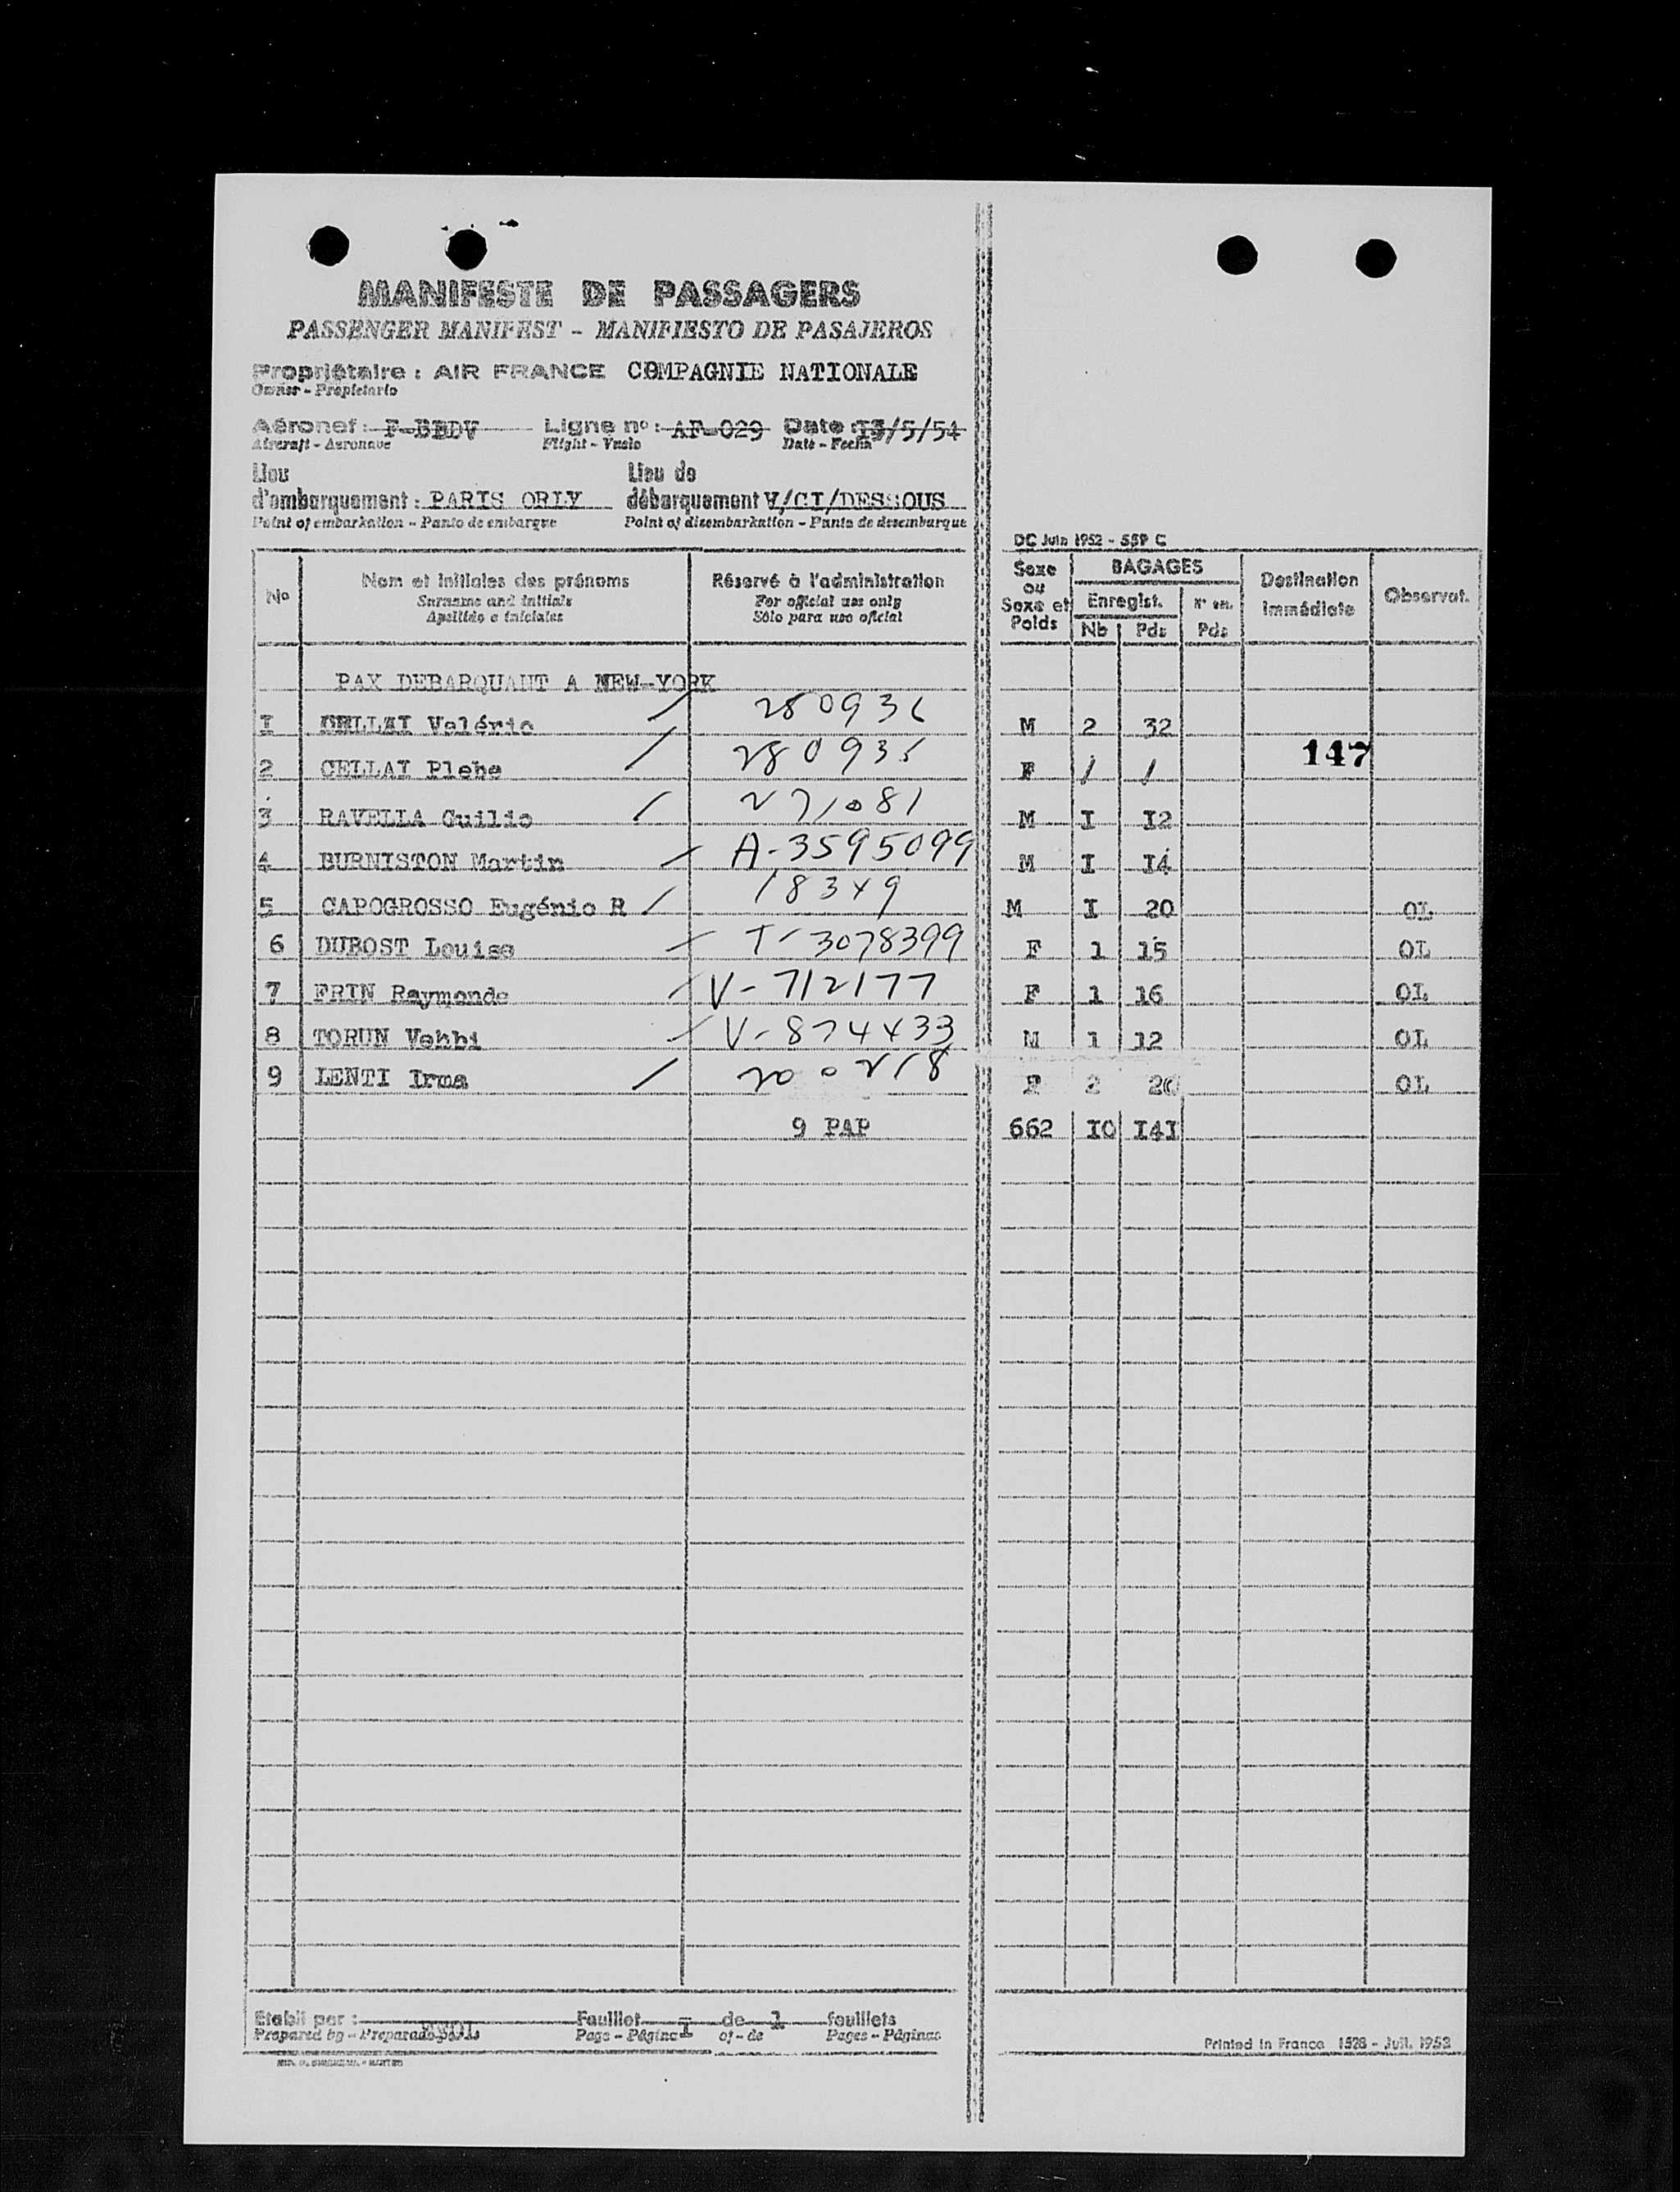 MANIFESTE DE PASSAGERS
PASSENGER MANIFEST - MANIFIESTO DE PASAJEROS
Propriétaire : AIR FRANCE COMPAGNIE NATIONALE
Owner - Propietario
Aéronef : F-BBDV Ligne n° : AF-029 Date : 13/5/54
Aircraft - Aeronave Flight - Vuelo Date - Fecha
Lieu Lieu de
d'embarquement : PARIS ORLY débarquement V/CI/DESSOUS
Point of embarkation - Punto de embarque Point of disembarkation - Punto de desembarque
DC Juin 1952 - 559 C
No Nom et initiales des prénoms Réservé à l'administration Sexe ou Sexe et Poids BAGAGES Destination immédiate Observat.
Surname and initials For official use only Enregist.
Apellido e iniciales Sólo para uso oficial Nb Pds Pds
PAX DEBARQUANT A NEW-YORK
I CELLAI Valério / 280936 M 2 32
2 CELLAI Plebe / 280935 F / / 147
3 RAVELLA Guilio / 271081 M I I2
4 BURNISTON Martin / A-3595099 M I I4
5 CAPOGROSSO Eugénio R / 18349 M I 20 OL
6 DUBOST Louise / T-3078399 F 1 15 OL
7 FRIN Raymonde / V-712177 F 1 16 OL
8 TORUN Vehbi / V-874433 M 1 12 OL
9 LENTI Irma / 200218 F 2 20 OL
9 PAP 662 IO I4I
Etabli par : Feuillet I de 1 feuillets
Prepared by - Preparado por Page - Página of - de Pages - Páginas
Printed in France 1528 - Juil. 1953